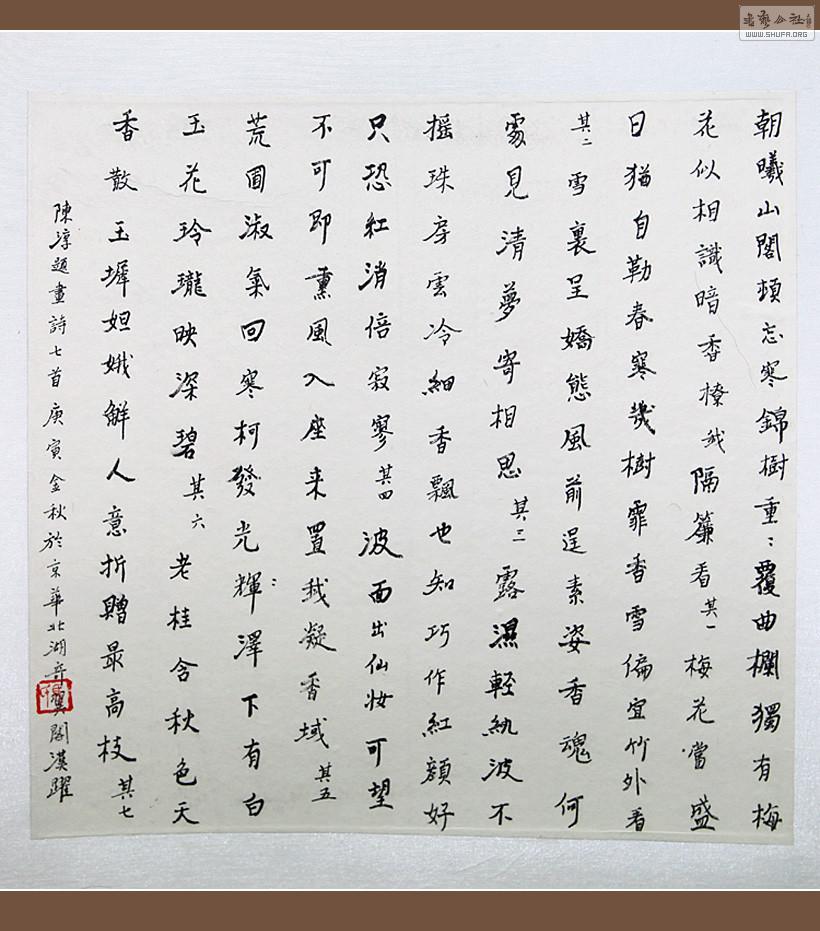 朝曦山閣頓忘寒錦樹重:覆曲欄獨有梅
花似相識暗香撩我隔簾看其一梅花當盛
日猶自勒春寒幾樹霏香雪偏宜竹外看
其二雪裏呈嬌態風前逞素姿香魂何
處見清夢寄相思其三露濕輕紈波不
搖珠房雲冷細香飄也知巧作紅顏好
只恐紅消倍寂寥其四波面出仙妆可望
不可即薰風入座来置我凝香域其五
荒圃淑氣回寒柯發光輝:澤下有白
玉花玲瓏映深碧其六老桂含秋色天
香散玉墀妲娥解人意折贈最高枝其七
陳淳題畫詩七首庚寅金秋於京華北湖閣漢躍
WWW.SHUFA.ORG